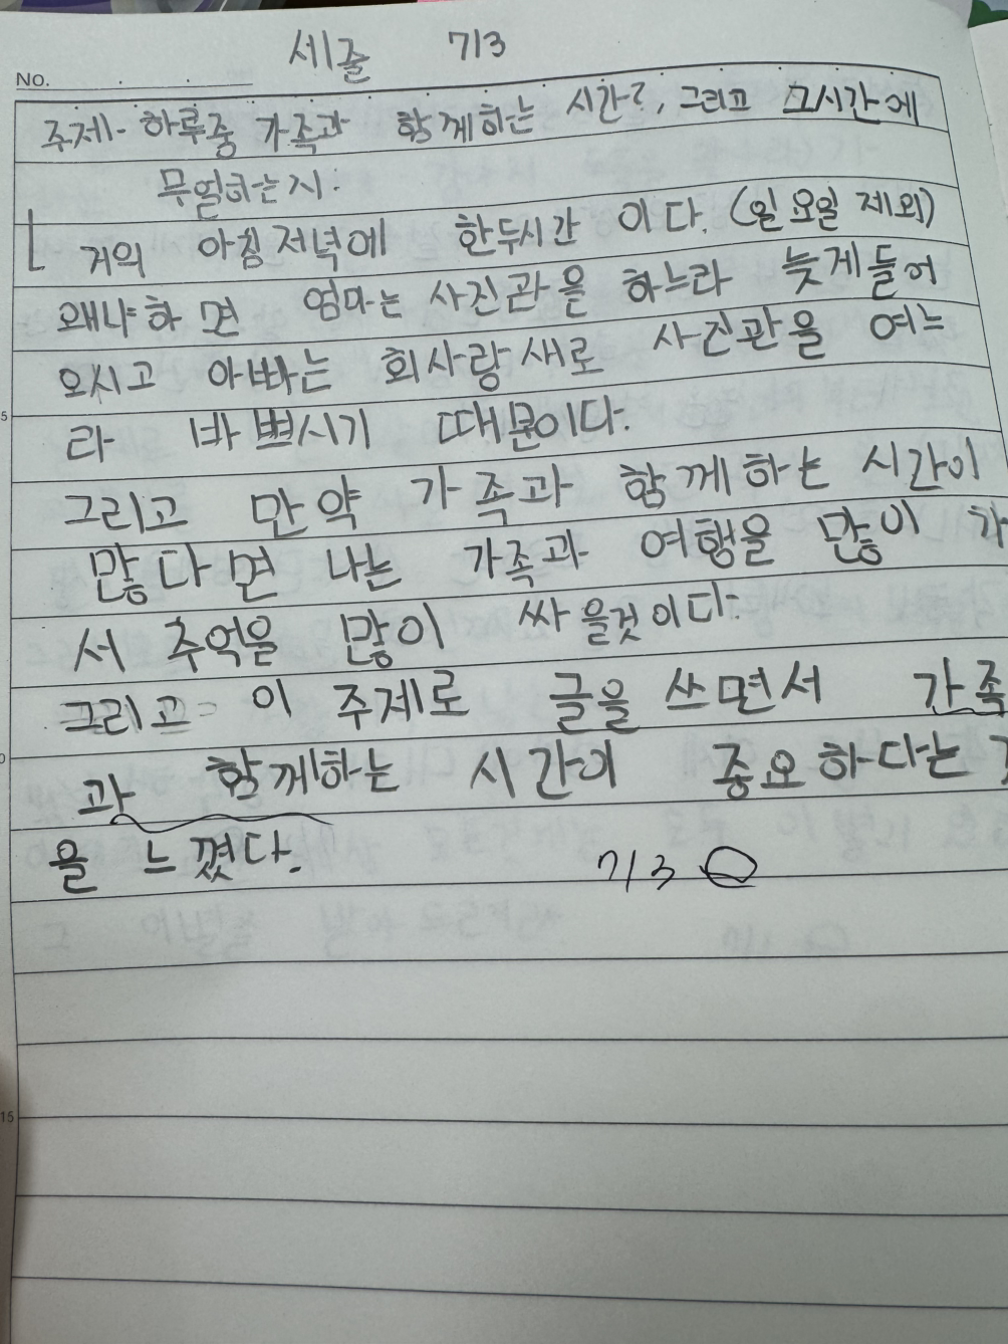 세줄 7/3
No.
주제- 하루중 가족과 함께하는 시간?, 그리고 그시간에
무얼하는지.
거의 아침저녁에 한두시간 이다. (일요일 제외)
왜냐하면 엄마는 사진관을 하느라 늦게들어
5 오시고 아빠는 회사랑 새로 사진관을 여느
라 바쁘시기 때문이다.
그리고 만약 가족과 함께하는 시간이
많다면 나는 가족과 여행을 많이 가
서 추억을 많이 싸을것이다.
그리고 이 주제로 글을 쓰면서 가족
과 함께하는 시간이 중요하다는
을 느꼈다. 7/3
15